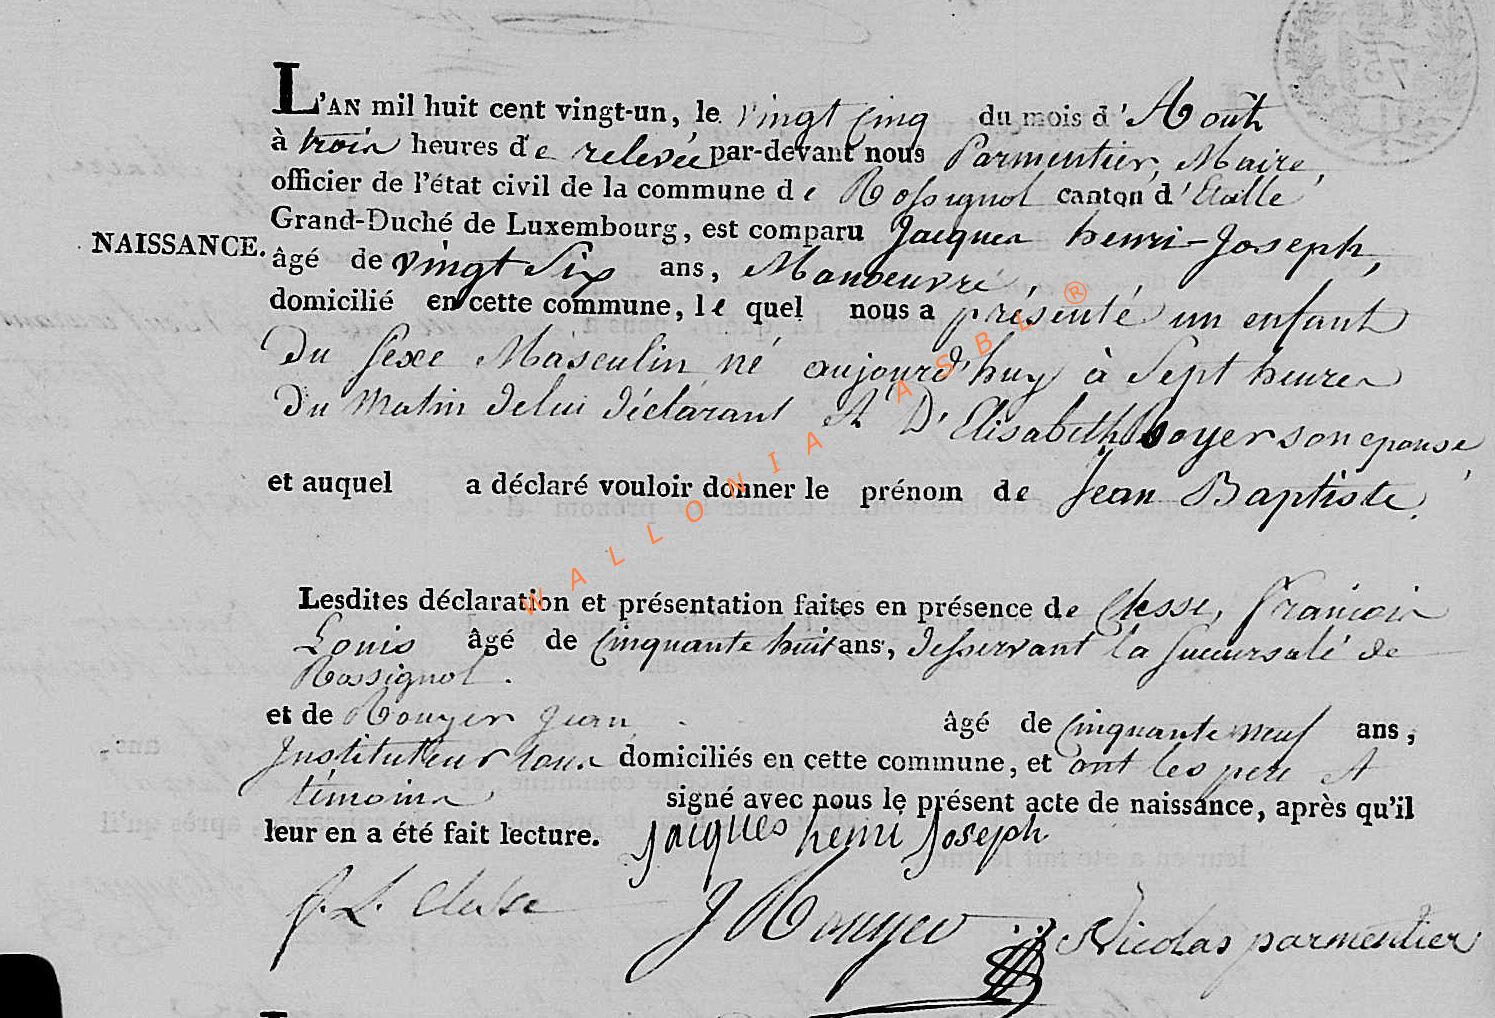 L'AN mil huit cent vingt-un, le vingt cinq du mois d'Août
à trois heures de relevée par-devant nous Parmentier, Maire,
officier de l'état civil de la commune de Rossignol canton d'Etalle
Grand-Duché de Luxembourg, est comparu Jacques henri-Joseph,
NAISSANCE. âgé de vingt Six ans, Manoeuvre
domicilié en cette commune, le quel nous a présenté un enfant
Du Sexe Masculin né aujourd'huy à Sept heures
Du Matin Delui Déclarant Et D'Elisabeth Royer son epouse,
et auquel a déclaré vouloir donner le prénom de Jean Baptiste.
Lesdites déclaration et présentation faites en présence de Clesse, François
Louis âgé de Cinquante huit ans, Desservant la Succursale de
Rossignol.
et de Rouyer Jean âgé de Cinquante neuf ans,
Instituteur tous domiciliés en cette commune, et ont les pere et
témoins signé avec nous le présent acte de naissance, après qu'il
leur en a été fait lecture. Jacques henri Joseph
f. L. Clesse J Rouyer Nicolas parmentier
WALLONIA ASBL ®